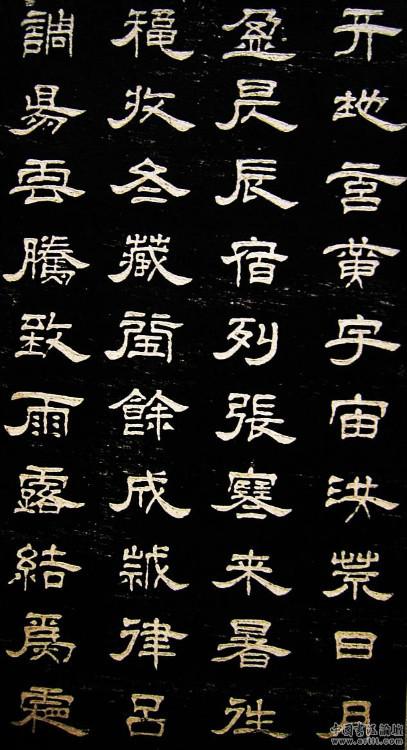 天地玄黄宇宙洪荒日月
盈昃辰宿列張寒来暑往
穐收冬藏閏餘成歲律吕
調昜雲騰致雨露結爲霜
中國書法論壇